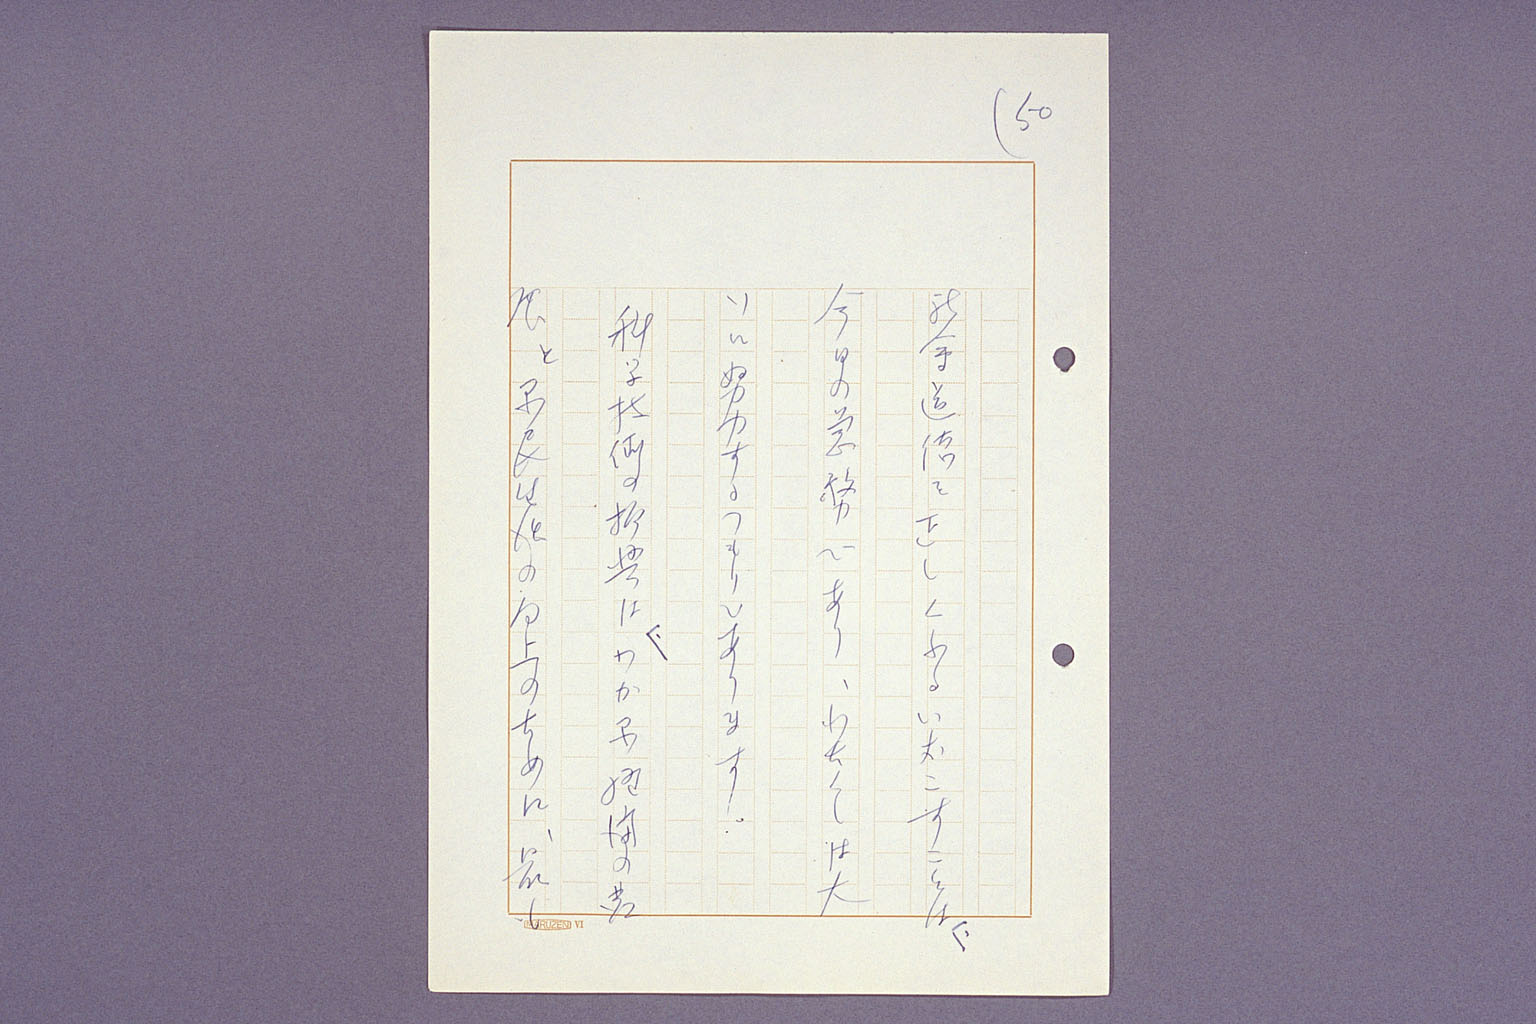 (50
社会道徳を正しくふるいおこすことは、
今日の急務であり、わたくしは大
いに努力するつもりであります。
科学技術の振興は、わが国経済の発
展と国民生活の向上のために、最も
MARUZEN VI